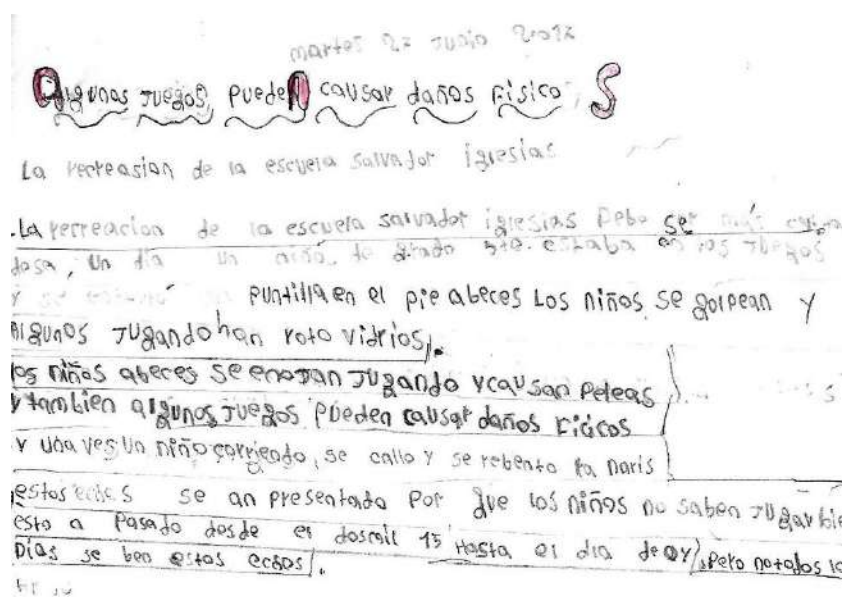 martes 27 Junio 2017
Algunos Juegos, pueden causar daños Físico S
La recreasion de la escuela salvador iglesias
.La recreacion de la escuela salvador iglesias Debe ser más
dosa, un día un niño de grado 5to. estaba en los Juegos
y se puntilla en el pie abeces Los niños se golpean y
algunos Jugando han roto vidrios.
los niños abeces se enojan Jugando y causan Peleas
y tambien algunos Juegos pueden causar daños
y una ves un niño corriendo, se callo y se rebento la naris
estos echos se an presentado Por que los niños no saben Jugar bie
esto a Pasado desde el dosmil 15 Hasta el dia de oy, pero no todos lo
Dias se ben estos echos.